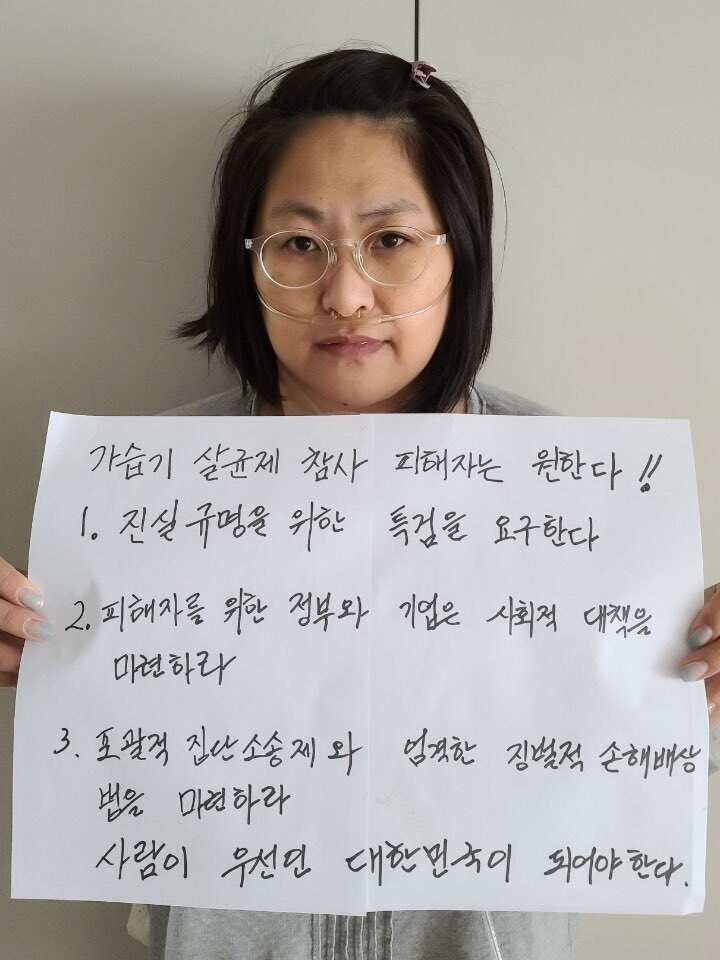 가습기 살균제 참사 피해자는 원한다!!
1. 진실규명을 위한 특검을 요구한다
2. 피해자를 위한 정부와 기업은 사회적 대책을
마련하라
3. 포괄적 집단소송제와 엄격한 징벌적 손해배상
법을 마련하라
사람이 우선인 대한민국이 되어야한다.